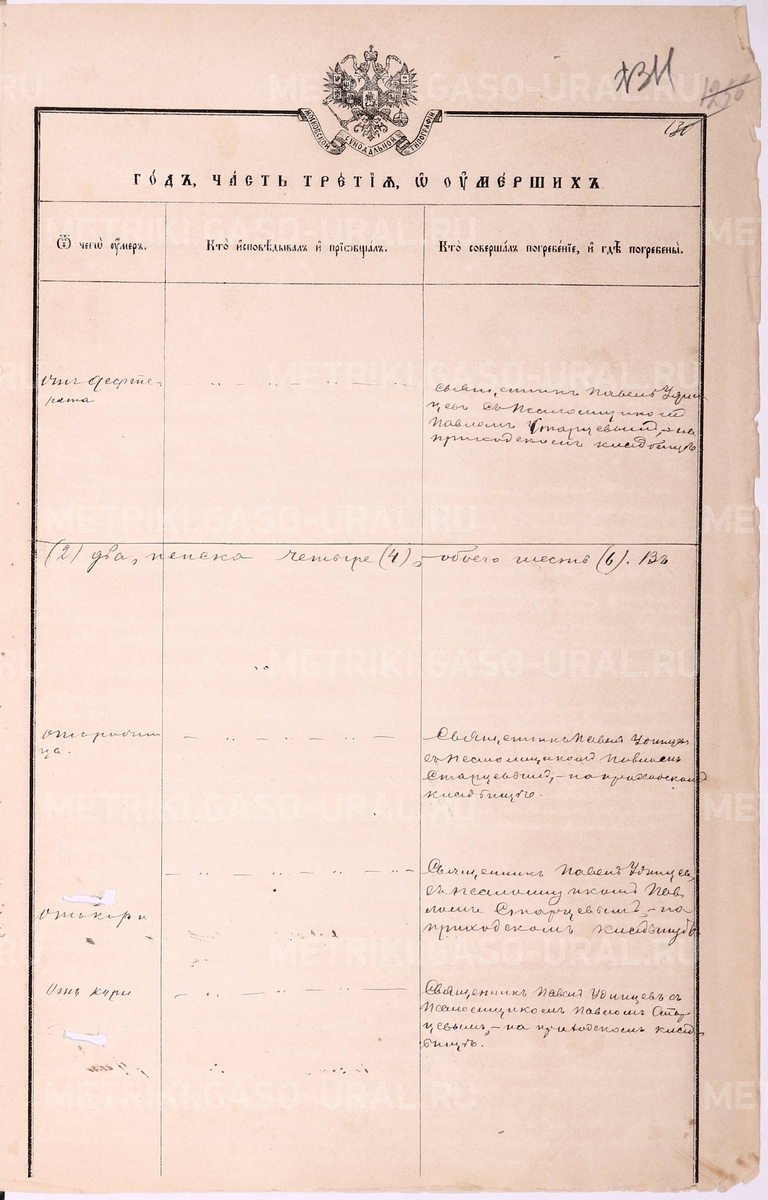 МОСКОВСКОЙ СѴНОДАЛЬНОЙ ТИПОГРАФІИ
130
ГО́ДЪ, ЧА́СТЬ ТРЕ́ТІЯ, Ѽ ОУ҆МЕ́РШИХЪ
Ѿ чегѡ̀ оу҆́меръ.
Кто̀ и҆сповѣ́дывалъ и҆ прїѡбща́лъ.
Кто̀ соверша́лъ погребе́нїе, и҆ гдѣ̀ погребены̀.
отъ дефте-
рита
Священникъ Павелъ Удин
цевъ съ Псаломщикомъ
Павломъ Старцевымъ, – на
приходскомъ кладбищѣ
(2) два, женска четыре (4), – обоего шесть (6). Въ
отъ родим
ца.
Священникъ Павелъ Удинцевъ
съ Псаломщикомъ Павломъ
Старцевымъ, – на приходскомъ
кладбищѣ.
отъ кори
Священникъ Павелъ Удинцевъ,
съ Псаломщикомъ Пав
ломъ Старцевымъ, – на
приходскомъ кладбищѣ
Отъ кори
Священникъ Павелъ Удинцевъ съ
Псаломщикомъ Павломъ Стар
цевымъ, – на приходскомъ клад
бищѣ.
METRIKI.GASO-URAL.RU